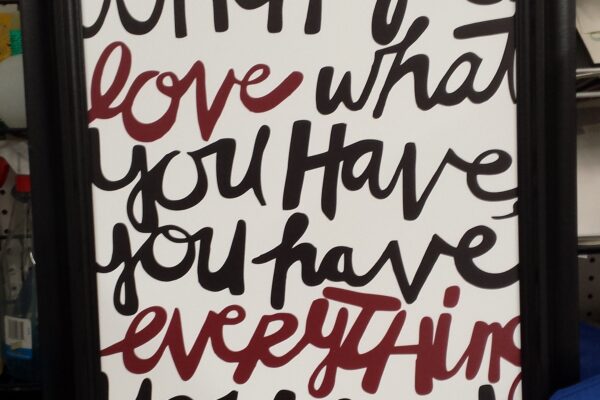 love what
you Have,
you have
everything